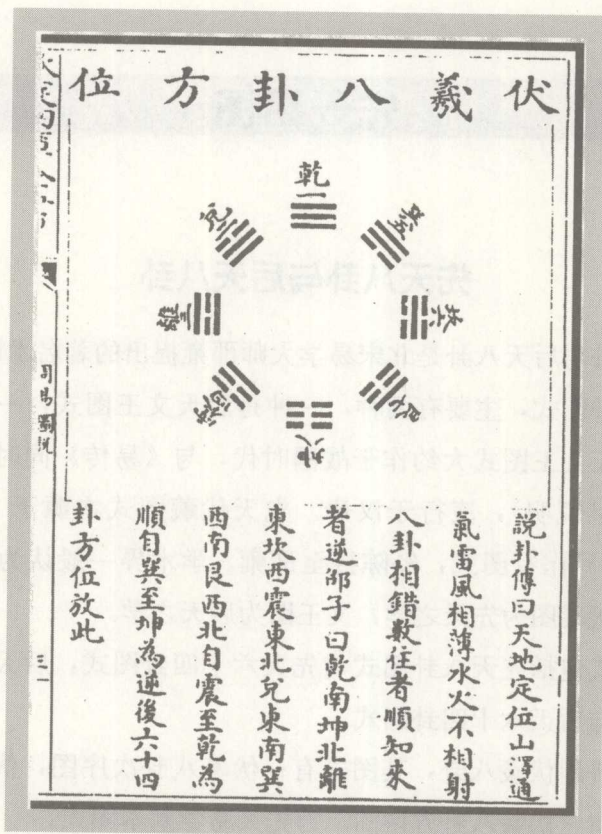 伏羲八卦方位
乾一
兌二
離三
震四
巽五
坎六
艮七
坤八
說卦傳曰天地定位山澤通
氣雷風相薄水火不相射
八卦相錯數往者順知來
者逆邵子曰乾南坤北離
東坎西震東北兌東南巽
西南艮西北自震至乾為
順自巽至坤為逆後六十四
卦方位放此